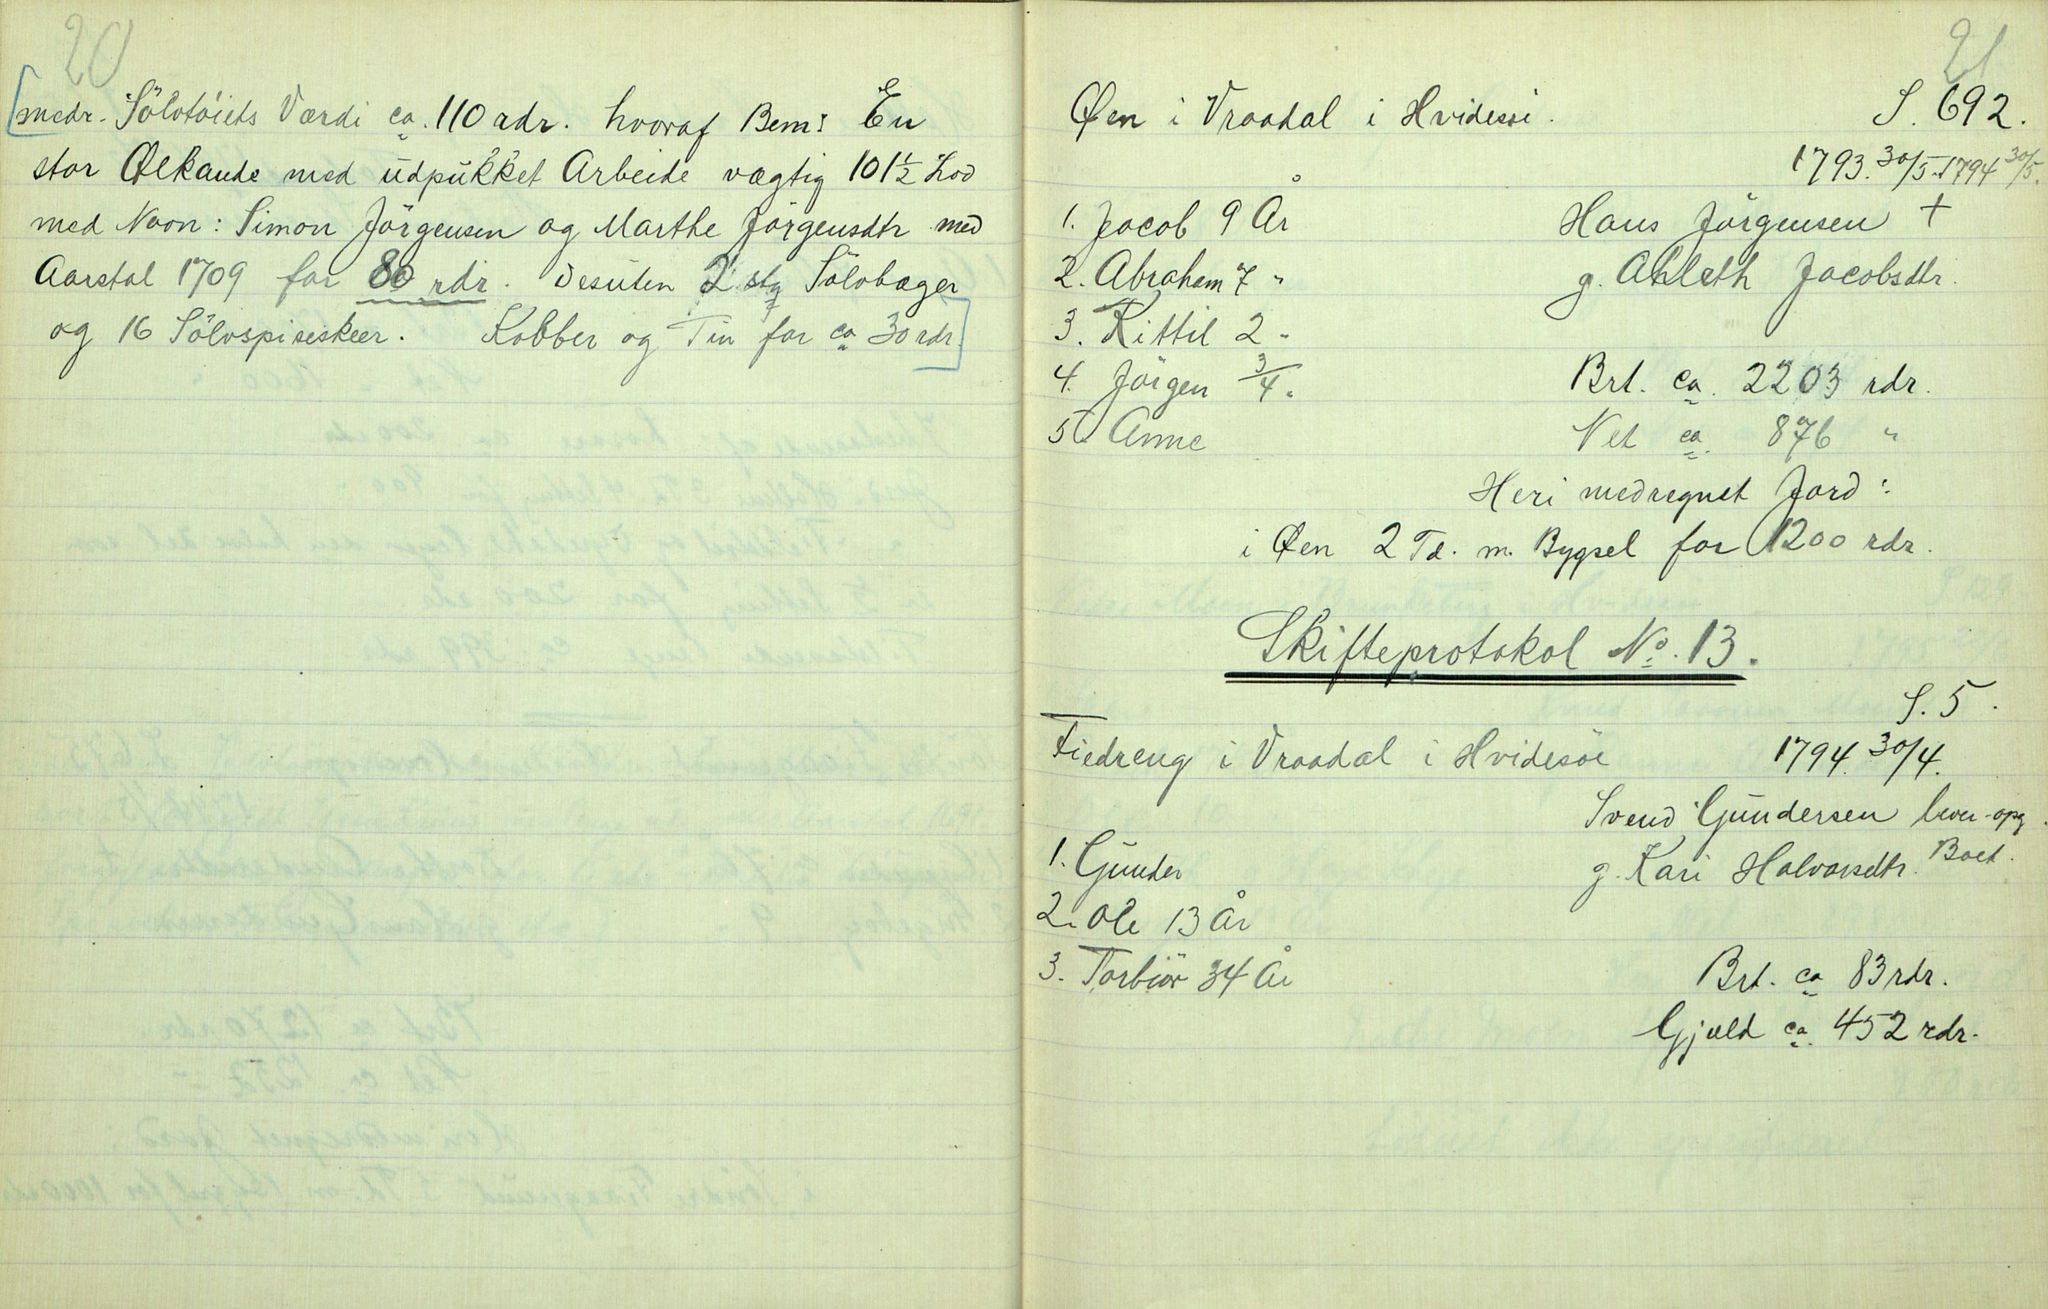 20
medr. Sölvtöiets Værdi ca. 110 rdr. hvoraf Bem: En
stor Ølkande med udpukket Arbeide vægtig 101½ Lod
med Navn: Simon Jörgensen og Marthe Jörgensdtr med
Aarstal 1709 for 80 rdr. Desuten 2 stg Sölvbæger
og 16 Sölvspiseskeer. Kobber og Tin for ca 30 rdr.
21
Øen i Vraadal i Hvidesöi. S. 692.
1793. 30/5. 1794 30/5.
1. Jacob 9 År Hans Jörgensen +
2. Abraham 7 " g. Ahleth Jacobsdtr.
3. Kittil 2 "
4. Jörgen 3/4 " Brt. ca. 2203 rdr.
5. Anne Net ca. 876 "
Heri medregnet Jord:
i Øen 2 Td. m. Bygsel for 1200 rdr.
Skifteprotokol No. 13.
S. 5.
Fiedreng i Vraadal i Hvidesöe 1794. 30/4.
Svend Gundersen lever-opg.
1. Gunder g. Kari Halvorsdtr. Boet.
2. Ole 13 År
3. Torbiör 34 År Brt. ca 83 rdr.
Gjæld ca. 452 rdr.